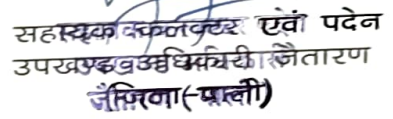 सहायक कलक्टर एवं पदेन
उपखण्ड अधिकारी जैतारण
जिला (पाली)